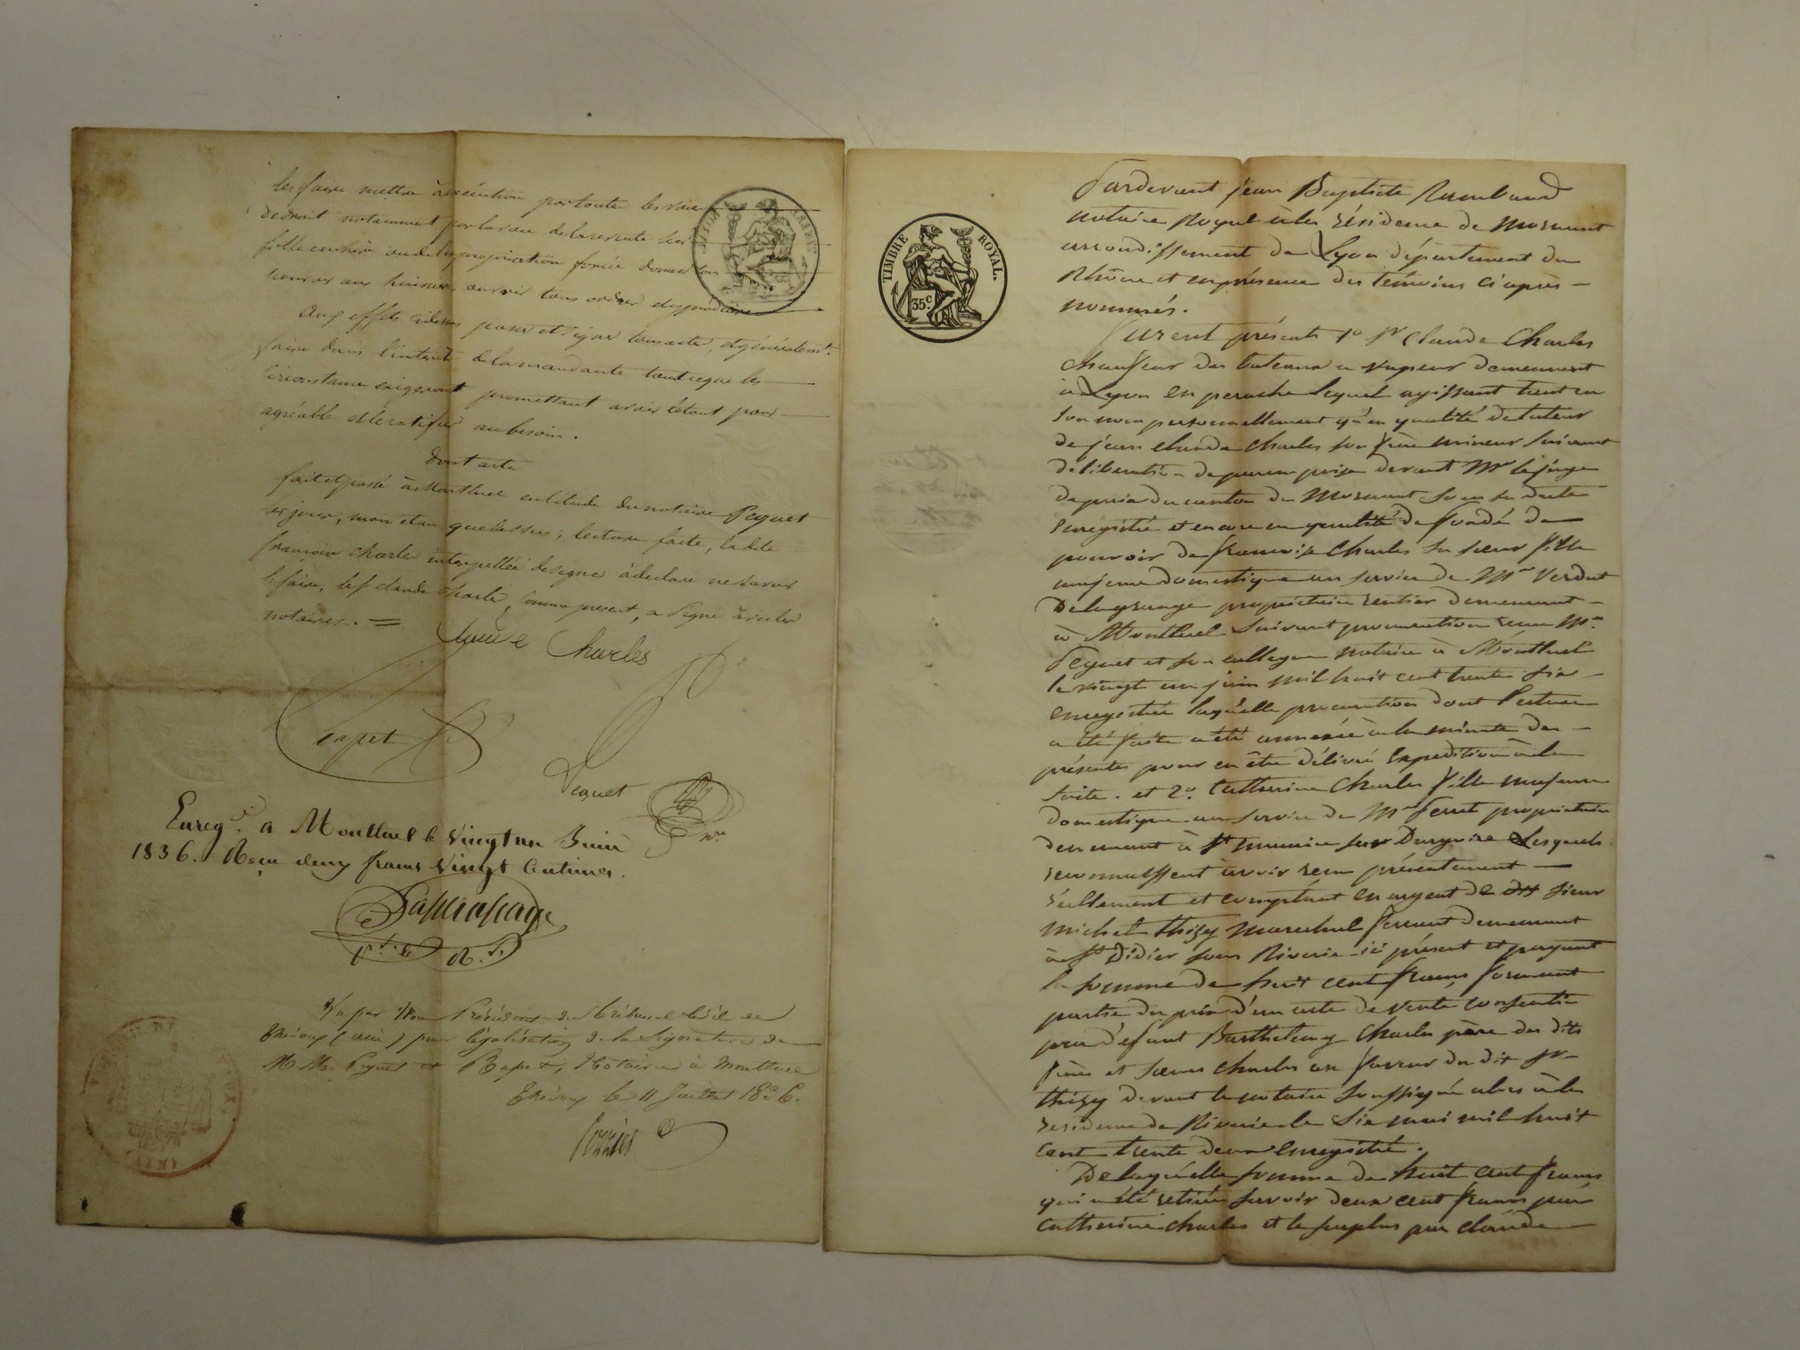 les faire mettre à exécution par toutes les voies
de droit notamment par la voie de la revente sur
folle enchère ou de l'expropriation forcée donner tous
pouvoir aux huissiers ouvrir tous ordres et y produire
Aux effets cidessus passer et signer tous actes, et généralemt.
faire dans l'intérêt de la mandante tout ce que les
circonstances exigeront promettant avoir le tout pour
agréable et le ratifier au besoin.
Dont acte
fait et passé à Montluel en l'étude du notaire Peguet
les jour, mois et an que dessus; lecture faite, ladite
françoise charle interpellée de signer à déclaré ne savoir
le faire, le sr claude charle, comme present, a signé avec les
notaires. =
Claude Charles
Rapet
Peguet
nre
Enregé. a Montluel le vingt un Juin
1836. Reçu deux francs vingt centimes.
Vu par Nous Président du Tribunal Civil de
Trévoux (ain) pour légalisation de la Signature de
M. Me. Peguet et Rapet, Notaires à Montluel
Trévoux le 11 Juillet 1836.
TIMBRE ROYAL.
35c.
Pardevant Jean Baptiste Rambaud
notaire Royal à la résidence de Mornant
arrondissement de Lyon département du
Rhône et en présence des témoins ci après
nommés.
Furent présents 1o. Sr Claude Charles
chauffeur des bateaux à vapeur demeurant
à Lyon en perache lequel agissant tant en
son nom personnellement qu'en qualité de tuteur
de jean claude Charles son frère mineur suivant
délibération de parens prise devant Mr le juge
de paix du canton de Mornant sous sa date
enregistré et encore en qualité de fondé de
pouvoir de françoise Charles sa sœur fille
majeure domestique au service de Mr Verdut
Delagrange propriétaire rentier demeurant
à Montluel suivant procuration reçue Me
Peguet et son collègue notaire à Montluel
le vingt un juin mil huit cent trente six
enregistrée laquelle procuration dont lecture
a été faite a été annexée à la minute des
présentes pour en être délivré Expédition à la
suite. et 2o. Catherine Charles fille majeure
domestique au service de Mr Ferret propriétaire
demeurant à St Maurice sur Dargoire Lesquels
reconnaissent avoir reçu présentement
réellement et comptant en argent de sieur
Michel thizy marechal ferrant demeurant
à St Didier sous Riverie ici présent et payant
la somme de huit cent francs formant
partie du prix d'un acte de vente consentie
par défunt Barthelemy Charles père des dits
frères et sœurs charles en faveur du dit Sr
thizy devant le notaire soussigné alors à la
residence de Riverie le six mai mil huit
cent trente deux enregistré.
De laquelle somme de huit cent francs
qui a été retirée savoir deux cent francs par
catherine charles et le surplus par claude